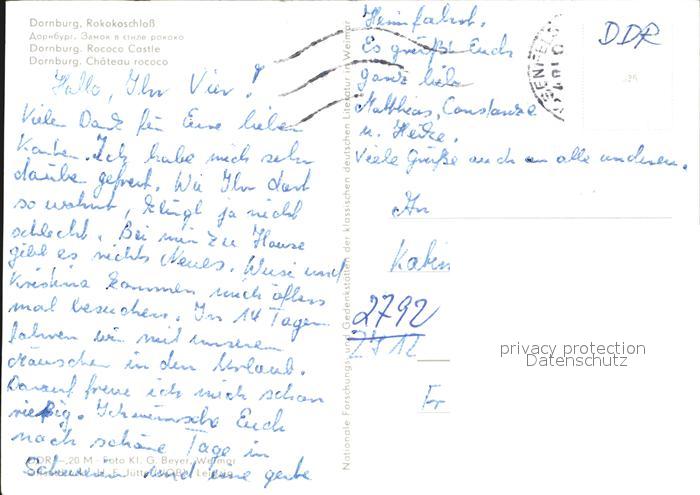 Dornburg, Rokokoschloß
Дорнбург. Замок в стиле рококо
Dornburg. Rococo Castle
Dornburg. Château rococo
Hallo, Ihr Vier!
Vielen Dank für Eure lieben
Karten. Ich habe mich sehr
darüber gefreut. Wie Ihr dort
so wohnt, klingt ja nicht
schlecht. Bei mir zu Hause
gibt es nichts Neues. und
Kristina kommen mich öfters
mal besuchen. In 14 Tagen
fahren wir mit unserem
in den Urlaub.
Darauf freue ich mich schon
riesig. Ich wünsche Euch
noch schöne Tage in
Schwerin und eine gute
Heimfahrt.
Es grüßt Euch
ganz lieb
Matthias, Constanze
u. Heike.
Viele Grüße auch an alle anderen.
DDR
An
2792
2412
Fr
privacy protection
Datenschutz
Nationale Forschungs- und Gedenkstätten der klassischen deutschen Literatur in Weimar
DDR –,20 M · Foto Kl. G. Beyer, Weimar